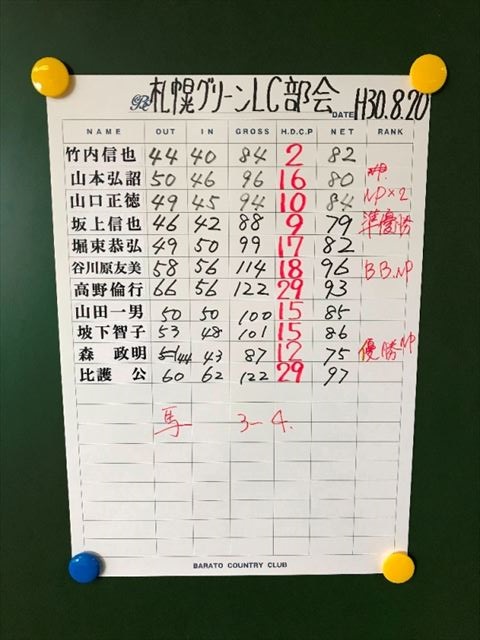 札幌グリーンLC部会 DATE H30.8.20
NAME OUT IN GROSS H.D.C.P NET RANK
竹内信也 44 40 84 2 82
山本弘詔 50 46 96 16 80
山口正徳 49 45 94 10 84 NP×2
坂上信也 46 42 88 9 79 準優勝
堀東恭弘 49 50 99 17 82
谷川原友美 58 56 114 18 96 B B. NP
高野倫行 66 56 122 29 93
山田一男 50 50 100 15 85
坡下智子 53 48 101 15 86
森 政明 44 43 87 12 75 優勝 NP
比護 公 60 62 122 29 97
馬 3-4.
BARATO COUNTRY CLUB